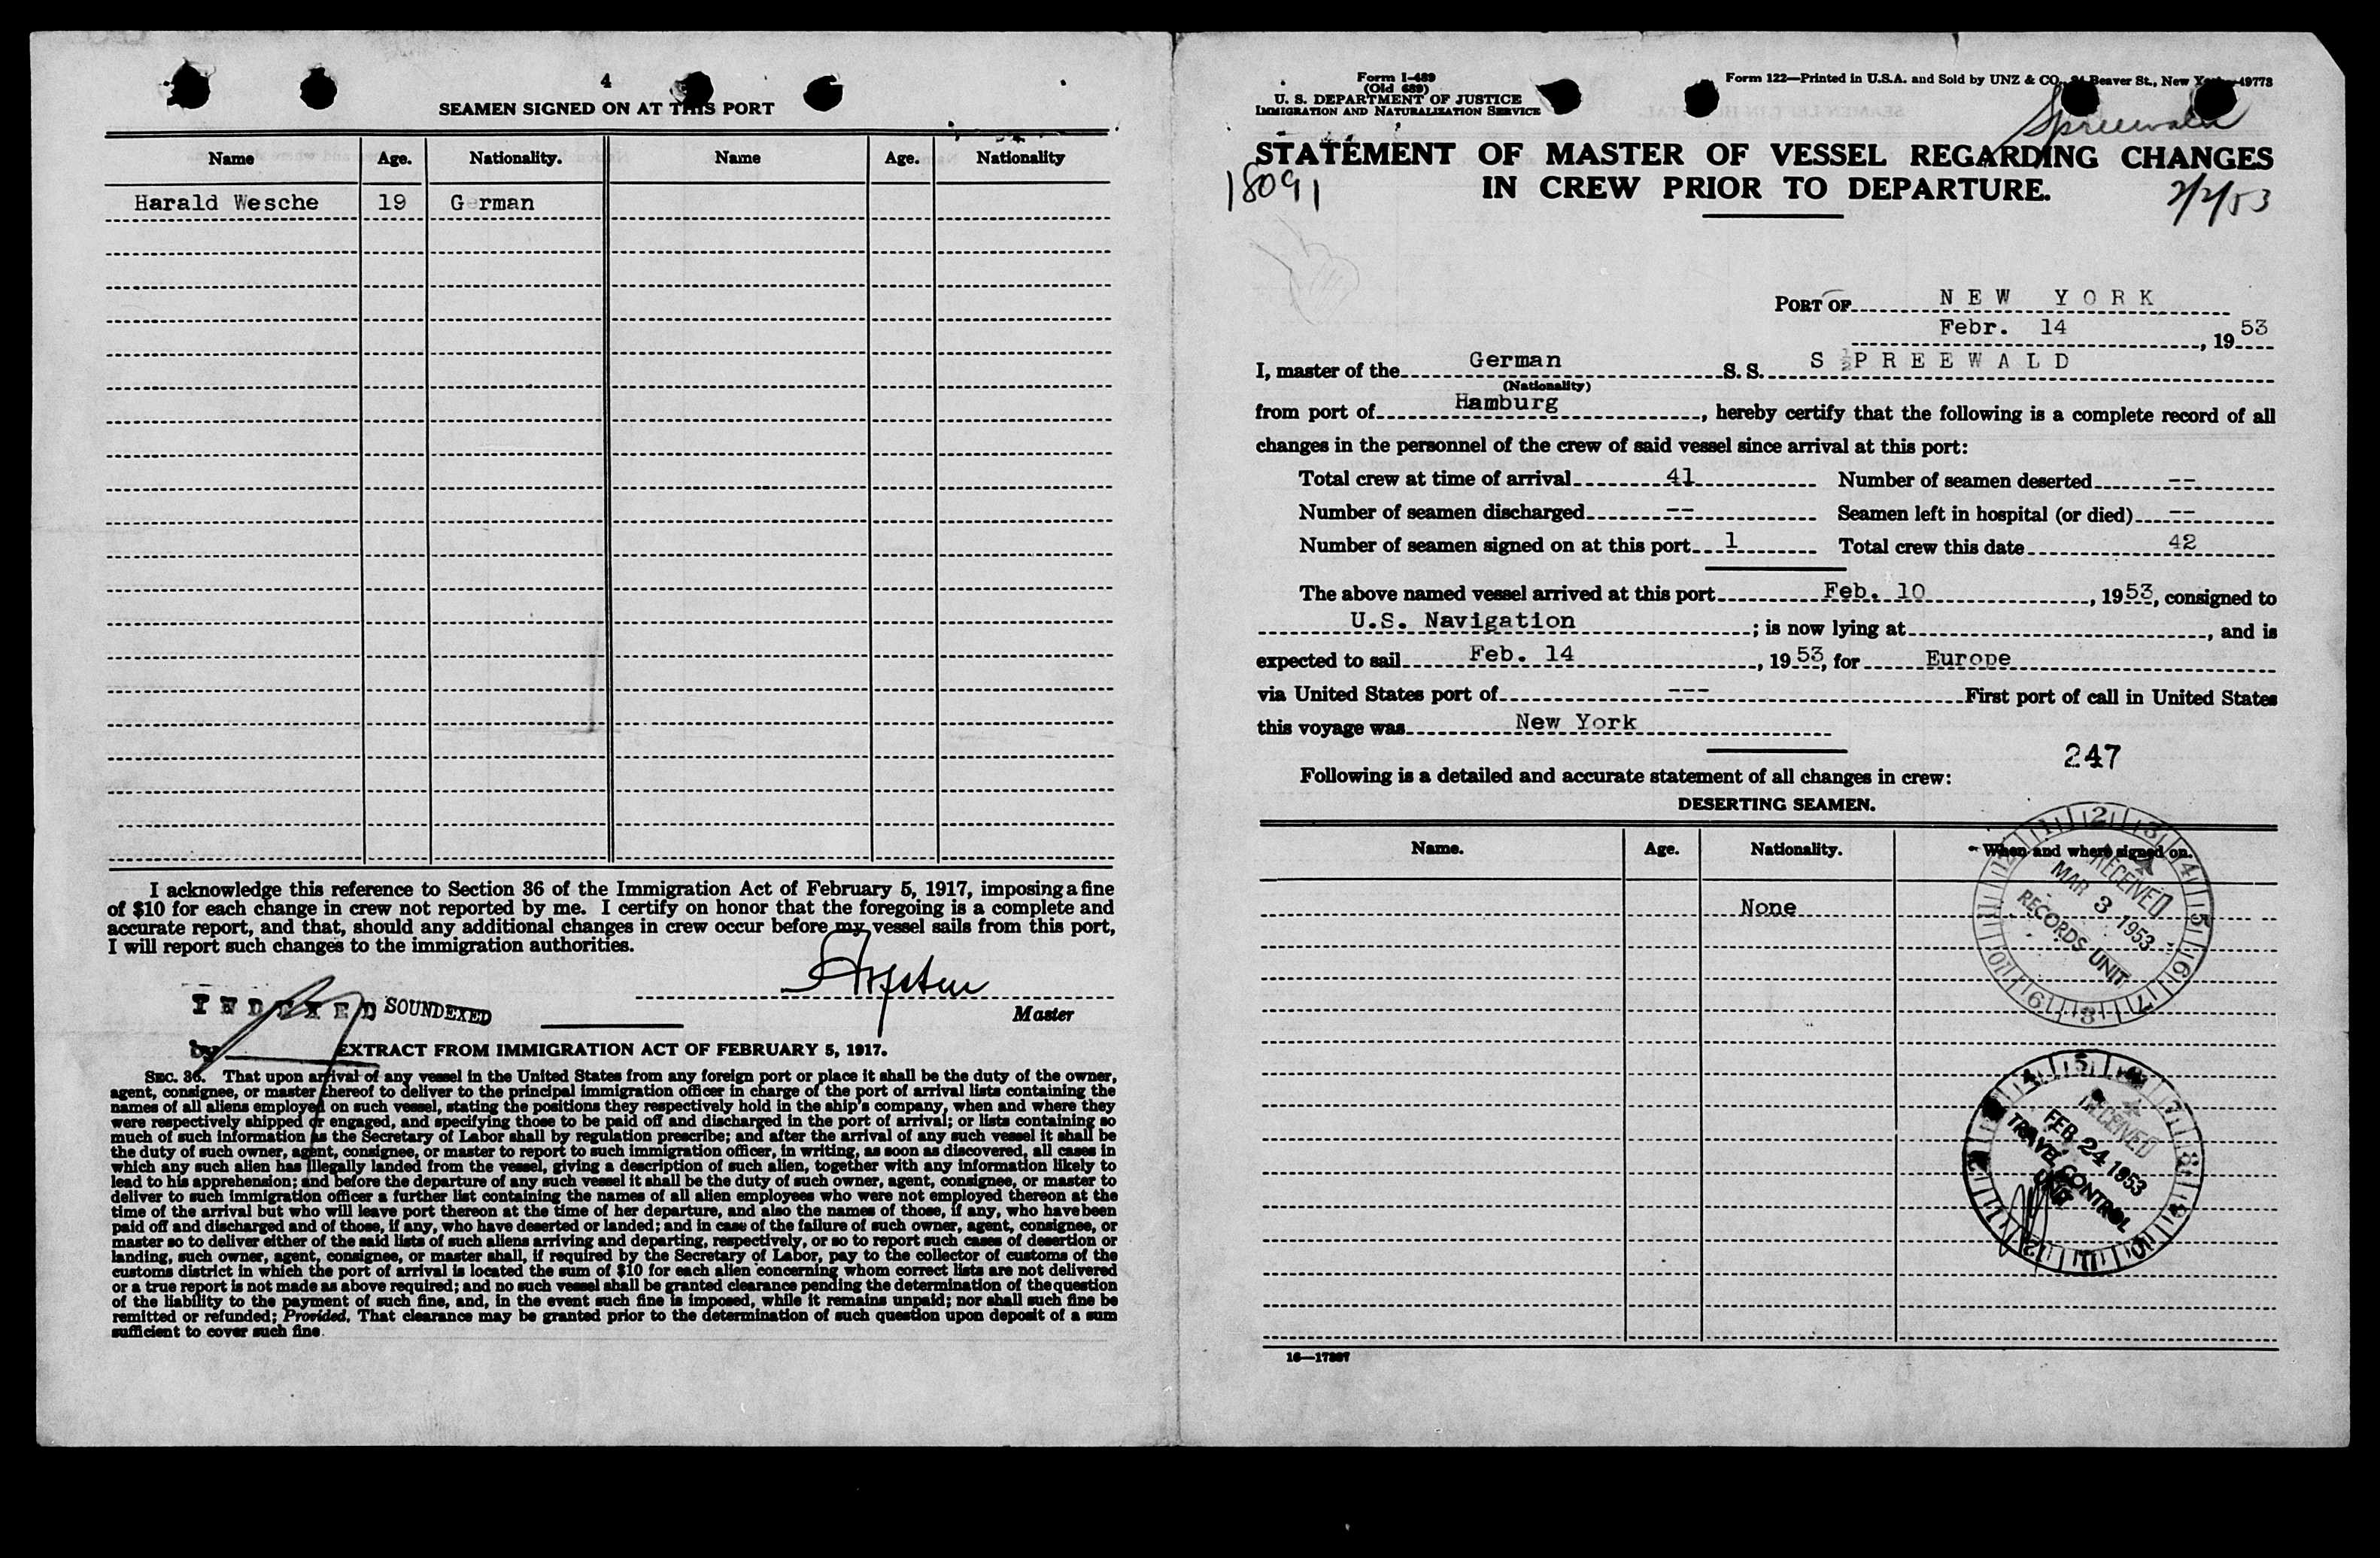 4
SEAMEN SIGNED ON AT THIS PORT
Name Age. Nationality. Name Age. Nationality
Harald Wesche 19 G rman
I acknowledge this reference to Section 36 of the Immigration Act of February 5, 1917, imposing a fine
of $10 for each change in crew not reported by me. I certify on honor that the foregoing is a complete and
accurate report, and that, should any additional changes in crew occur before my vessel sails from this port,
I will report such changes to the immigration authorities.
INDEXED SOUNDEXED
Master
by
EXTRACT FROM IMMIGRATION ACT OF FEBRUARY 5, 1917.
SEC. 36. That upon arrival of any vessel in the United States from any foreign port or place it shall be the duty of the owner,
agent, consignee, or master thereof to deliver to the principal immigration officer in charge of the port of arrival lists containing the
names of all aliens employed on such vessel, stating the positions they respectively hold in the ship's company, when and where they
were respectively shipped or engaged, and specifying those to be paid off and discharged in the port of arrival; or lists containing so
much of such information as the Secretary of Labor shall by regulation prescribe; and after the arrival of any such vessel it shall be
the duty of such owner, agent, consignee, or master to report to such immigration officer, in writing, as soon as discovered, all cases in
which any such alien has illegally landed from the vessel, giving a description of such alien, together with any information likely to
lead to his apprehension; and before the departure of any such vessel it shall be the duty of such owner, agent, consignee, or master to
deliver to such immigration officer a further list containing the names of all alien employees who were not employed thereon at the
time of the arrival but who will leave port thereon at the time of her departure, and also the names of those, if any, who have been
paid off and discharged and of those, if any, who have deserted or landed; and in case of the failure of such owner, agent, consignee, or
master so to deliver either of the said lists of such aliens arriving and departing, respectively, or so to report such cases of desertion or
landing, such owner, agent, consignee, or master shall, if required by the Secretary of Labor, pay to the collector of customs of the
customs district in which the port of arrival is located the sum of $10 for each alien concerning whom correct lists are not delivered
or a true report is not made as above required; and no such vessel shall be granted clearance pending the determination of the question
of the liability to the payment of such fine, and, in the event such fine is imposed, while it remains unpaid; nor shall such fine be
remitted or refunded; Provided, That clearance may be granted prior to the determination of such question upon deposit of a sum
sufficient to cover such fine.
Form I-489
(Old 689)
U. S. DEPARTMENT OF JUSTICE
IMMIGRATION AND NATURALIZATION SERVICE
Form 122—Printed in U.S.A. and Sold by UNZ & CO., Beaver St., New 49773
Spreewald
STATEMENT OF MASTER OF VESSEL REGARDING CHANGES
IN CREW PRIOR TO DEPARTURE.
18091
2/2/53
PORT OF NEW YORK
Febr. 14, 1953
I, master of the German S. S. S ½PREEWALD
(Nationality)
from port of Hamburg, hereby certify that the following is a complete record of all
changes in the personnel of the crew of said vessel since arrival at this port:
Total crew at time of arrival 41 Number of seamen deserted --
Number of seamen discharged -- Seamen left in hospital (or died) --
Number of seamen signed on at this port 1 Total crew this date 42
The above named vessel arrived at this port Feb. 10, 1953, consigned to
U.S. Navigation; is now lying at , and is
expected to sail Feb. 14, 1953, for Europe
via United States port of --- First port of call in United States
this voyage was New York
247
Following is a detailed and accurate statement of all changes in crew:
DESERTING SEAMEN.
Name. Age. Nationality. When and where signed on.
None
RECEIVED
MAR 3 1953
RECORDS UNIT
RECEIVED
FEB 24 1953
TRAVEL CONTROL
UNIT
16—17387